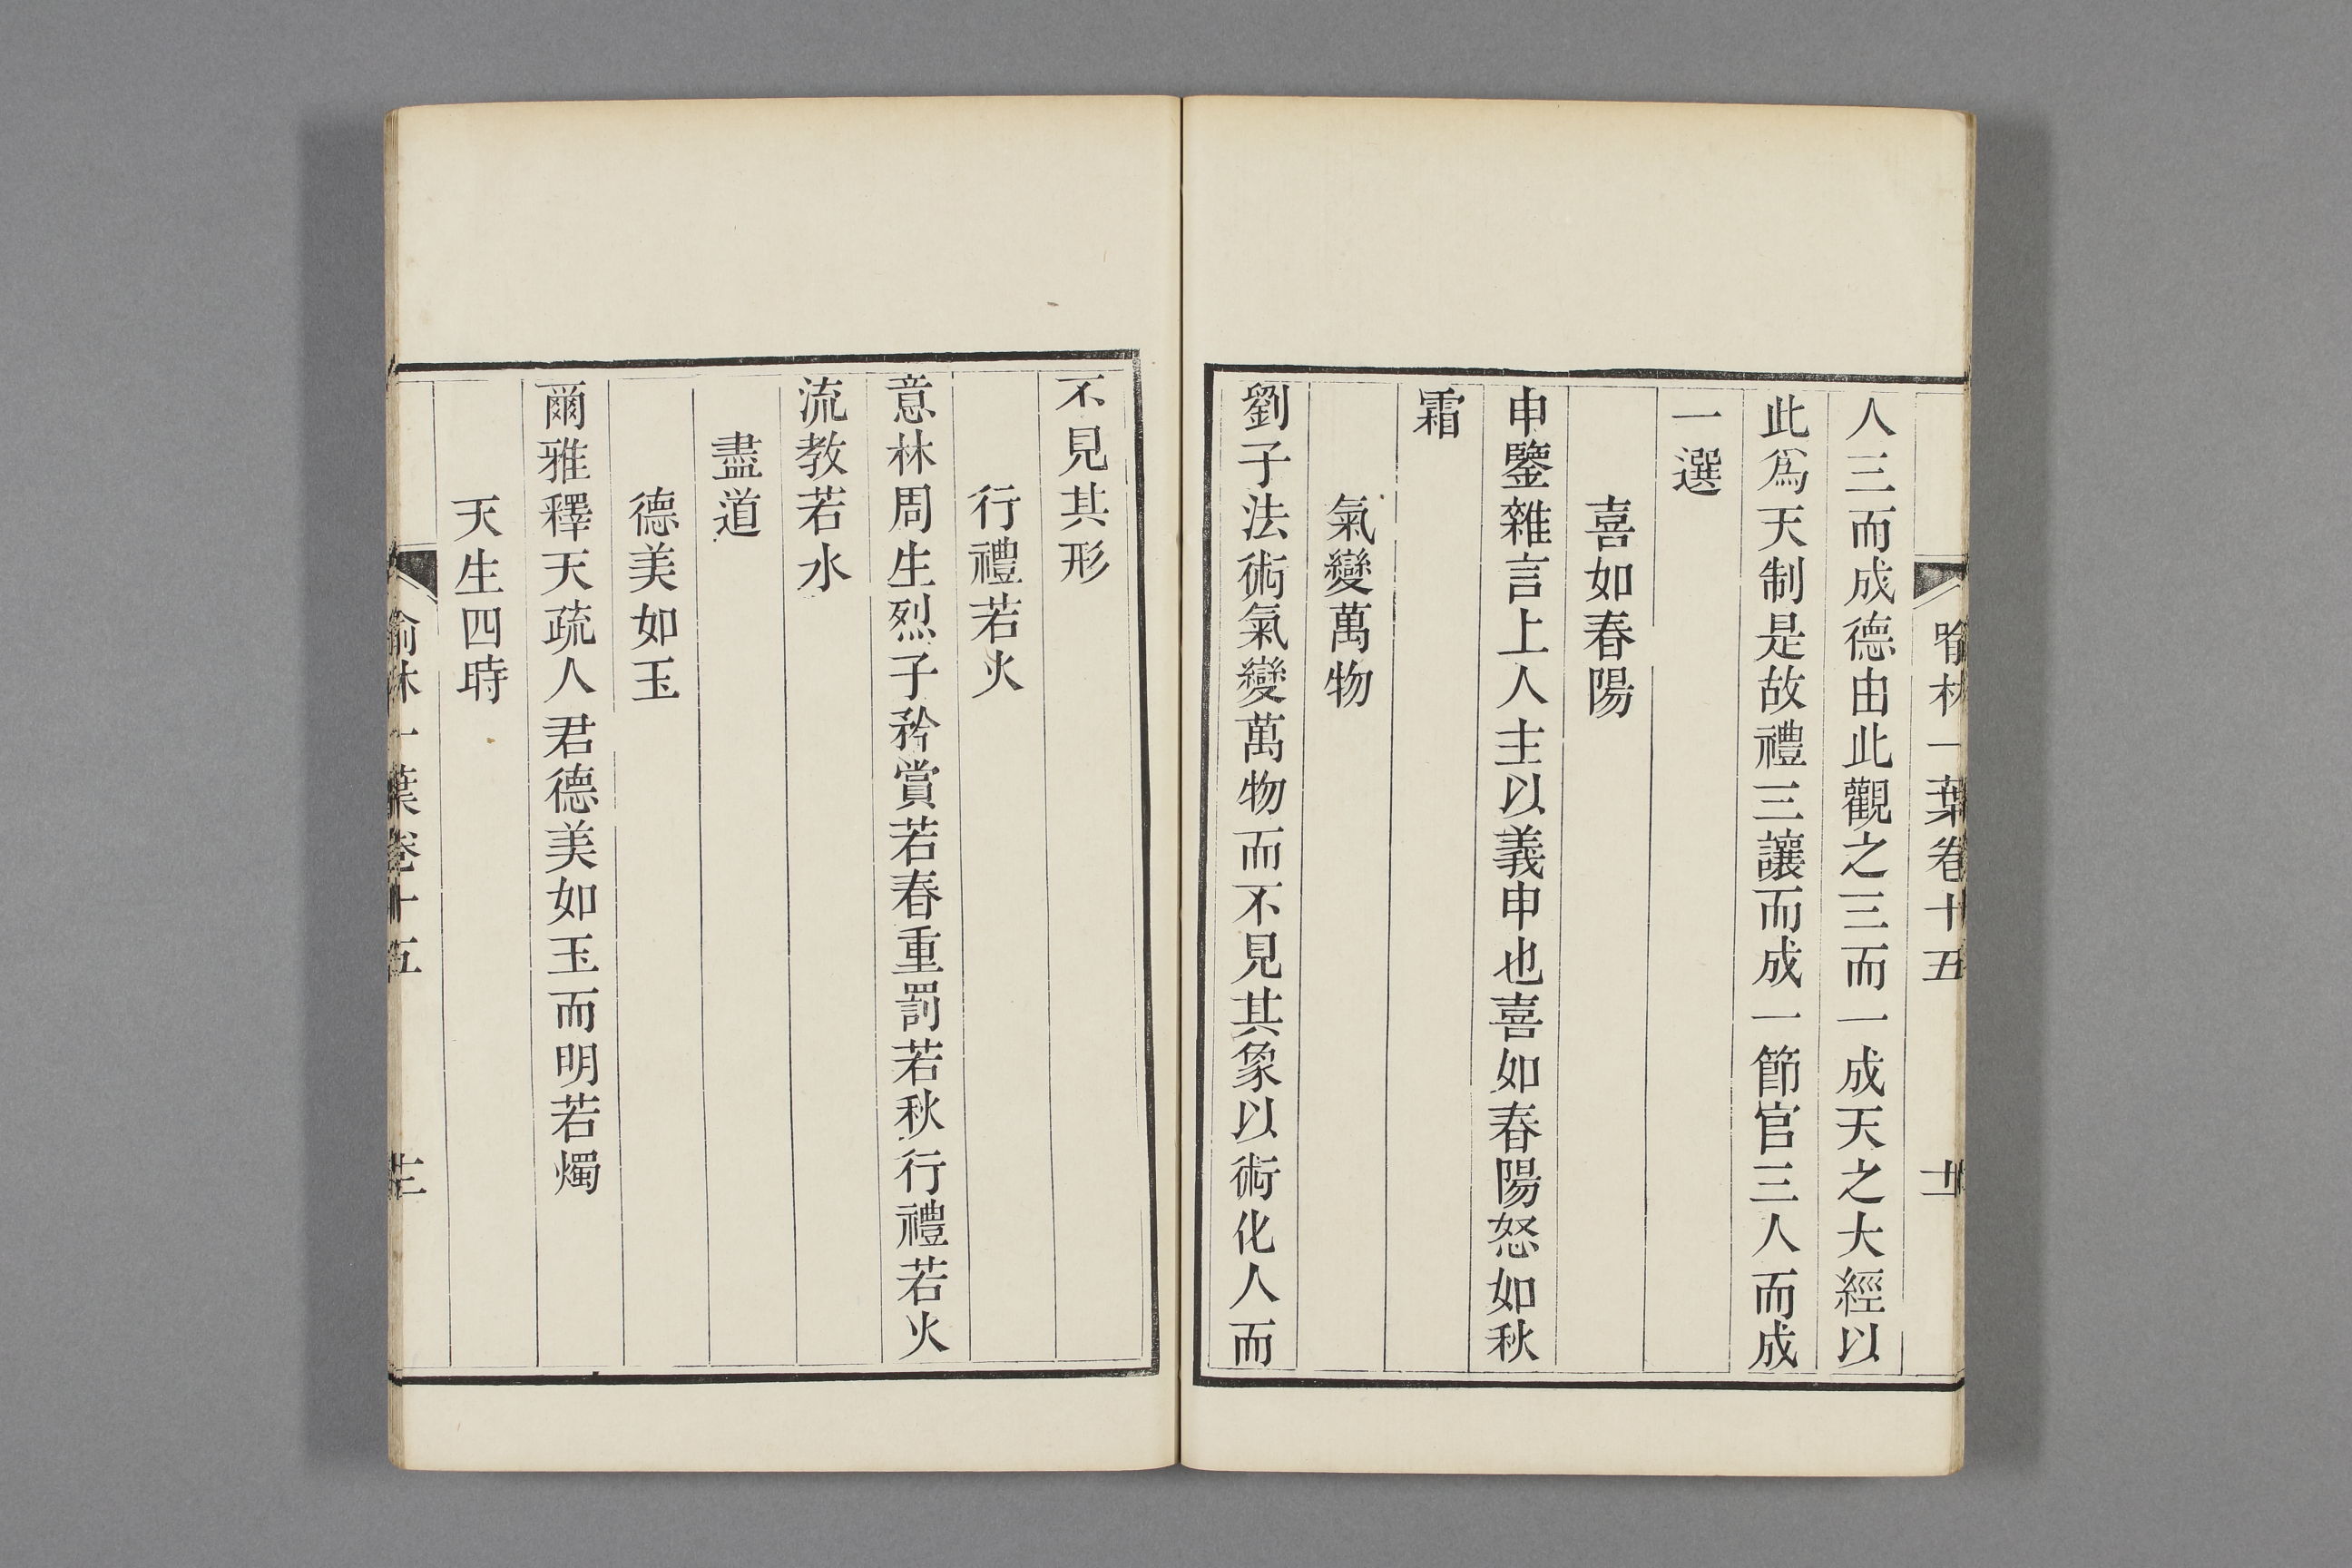 喻林一葉卷十五
人三而成德由此觀之三而一成天之大經以
此爲天制是故禮三讓而成一節官三人而成
一選
喜如春陽
申鑒雜言上人主以義申也喜如春陽怒如秋
霜
氣變萬物
劉子法術氣變萬物而不見其象以術化人而
不見其形
行禮若火
意林周生烈子矜賞若春重罰若秋行禮若火
流教若水
盡道
德美如玉
爾雅釋天疏人君德美如玉而明若燭
天生四時
喻林一葉卷十五